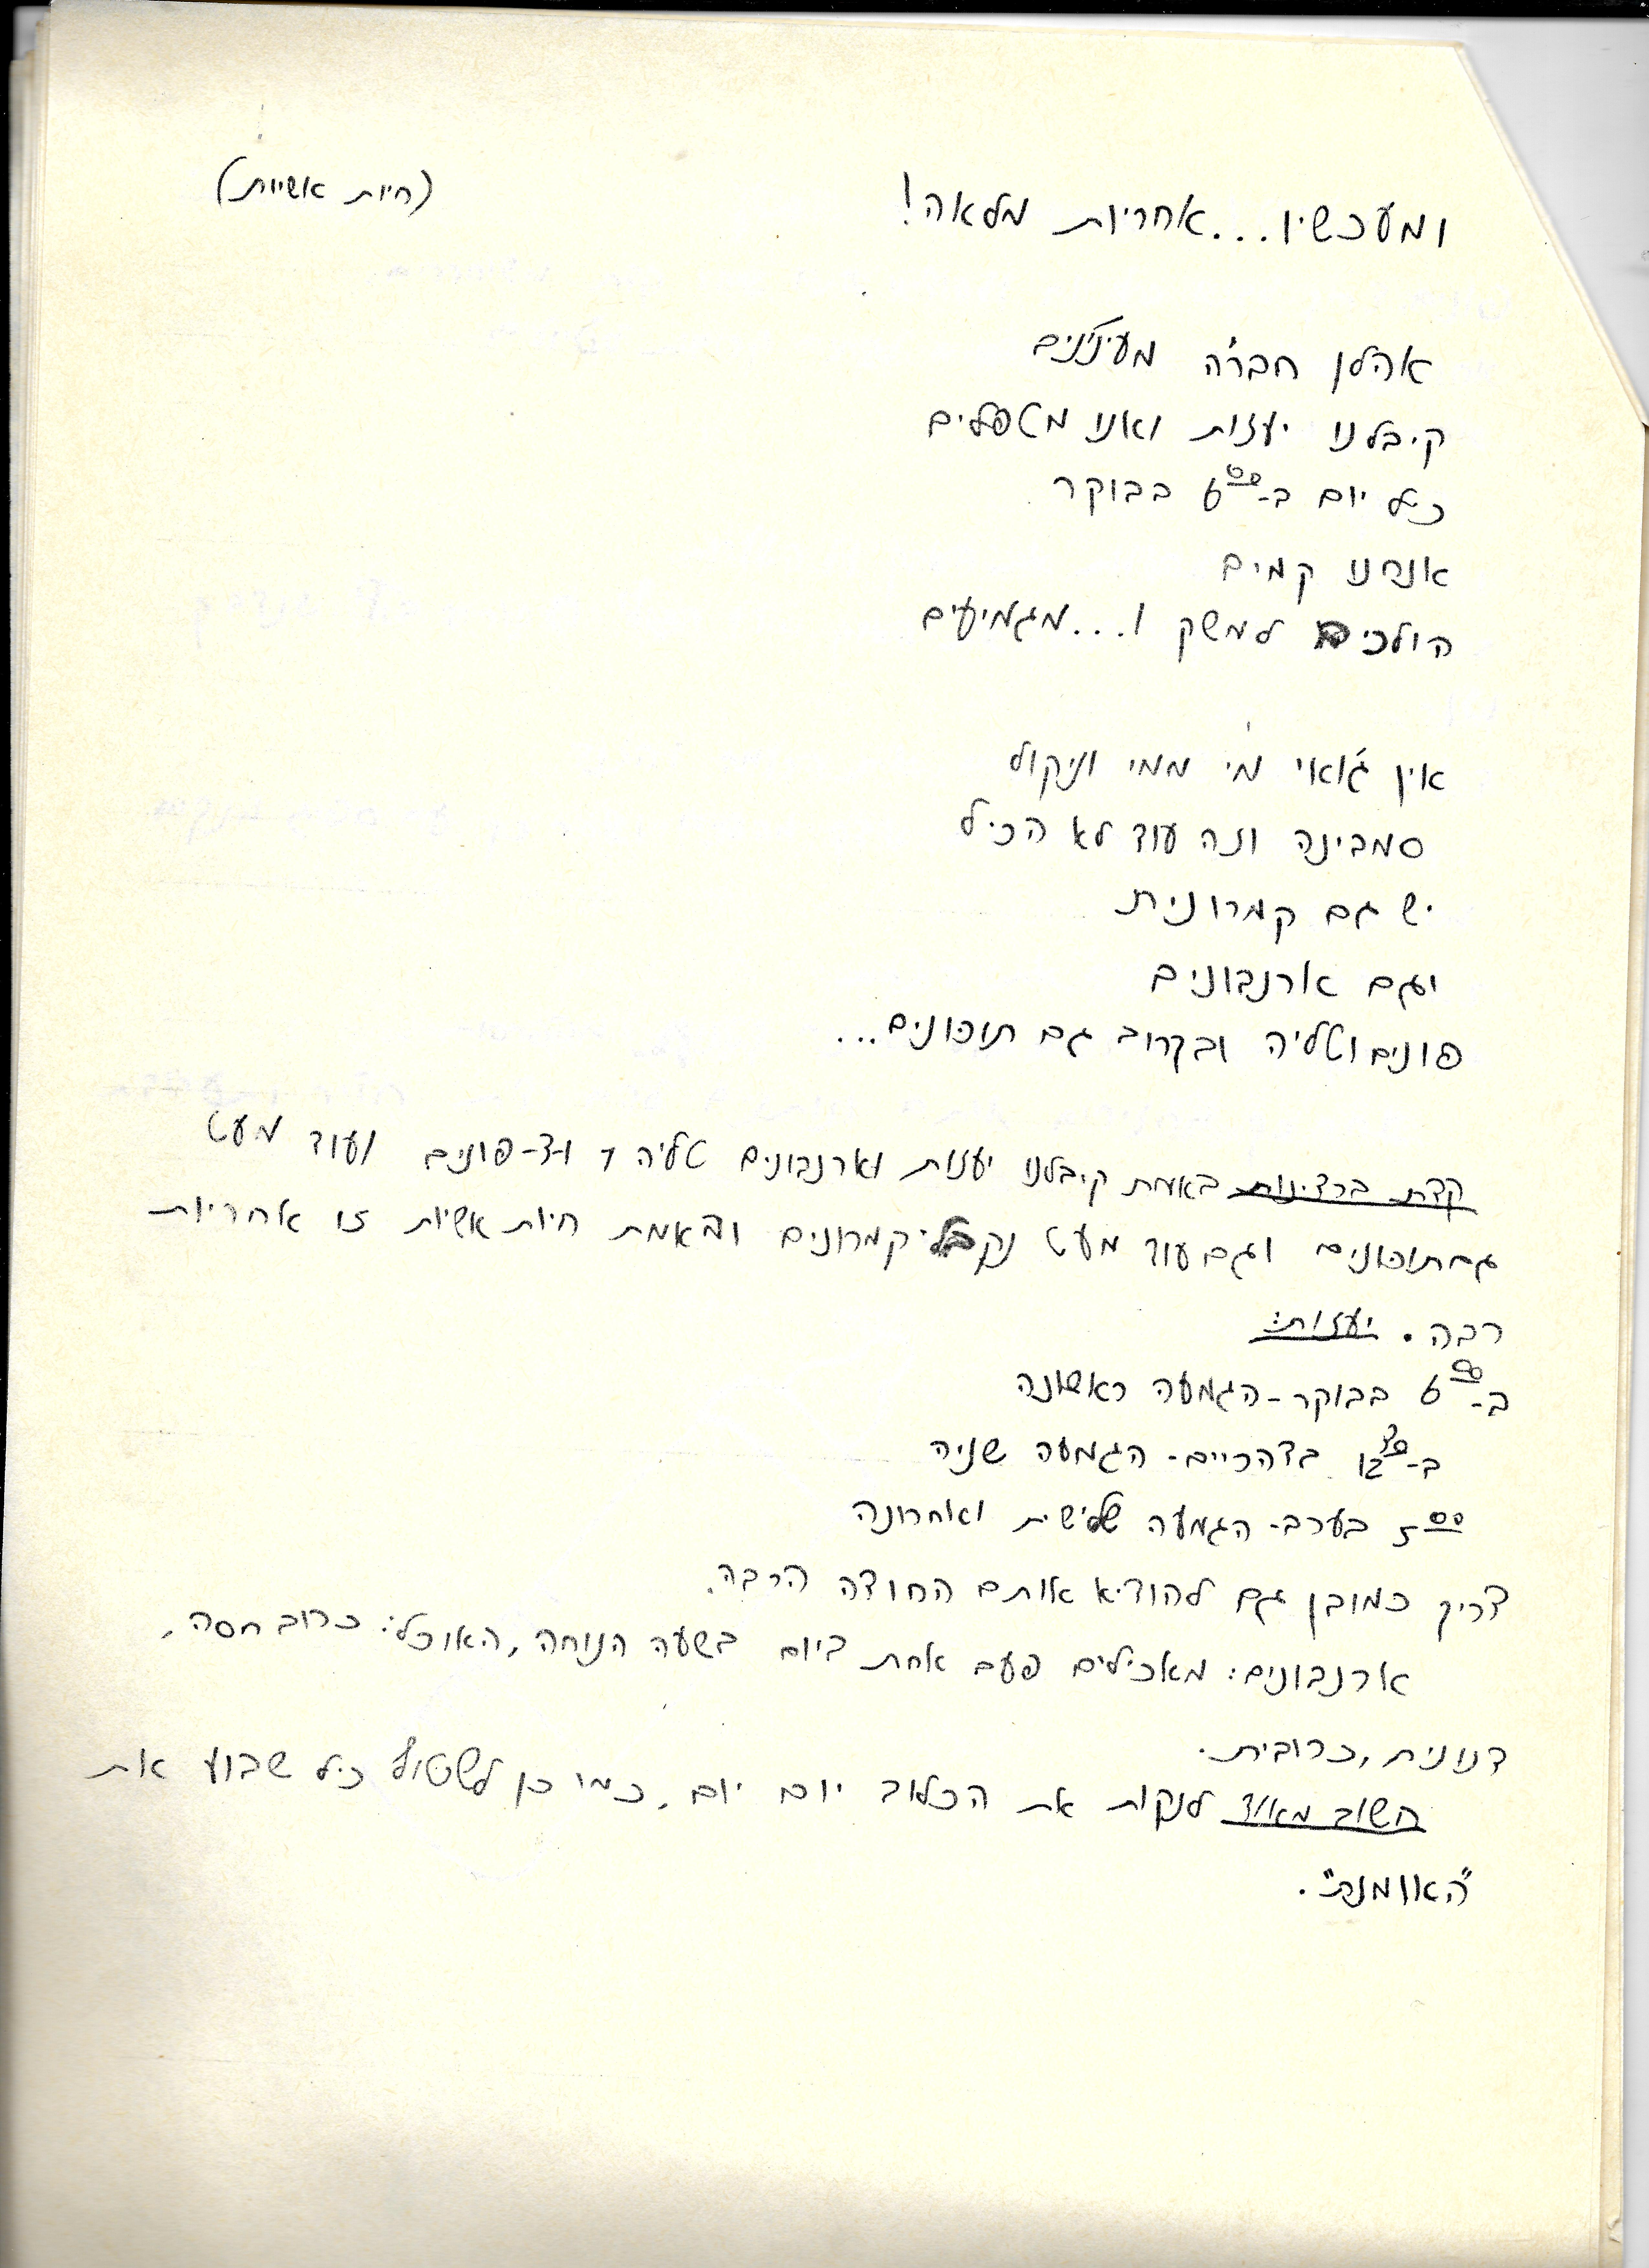 (חיות אשיות)
ומעכשיו... אחריות מלאה!
אהלן חבר'ה מעינינים
קיבלנו יעזות ואנו מטפלים
כל יום ב-6⁰⁰ בבוקר
אנחנו קמים
הולכים למשק ו... מגמיעים
אין ג'ואי מי ממי וניקול
סמבינה וזה עוד לא הכיל
יש גם קמרונית
וגם ארנבונים
פונים וטליה ובקרוב גם תוכונים...
קצת ברצינות באמת קיבלנו יעזות וארנבונים טליה 1 ו-2-פונים ועוד מעט
גם תוכונים וגם עוד מעט נקבל קמרונים ובאמת חיות אשיות זו אחריות
רבה. יעזות:
ב-6⁰⁰ בבוקר-הגמעה ראשונה
ב-12³⁰ בצהריים-הגמעה שניה
5⁰⁰ בערב-הגמעה שלישית ואחרונה
צריך כמובן גם להוציא אותם החוצה הרבה.
ארנבונים: מאכילים פעם אחת ביום בשעה הנוחה, האוכל: כרוב חסה,
צנונית, כרובית.
חשוב מאוד לנקות את הכלוב יום יום, כמו כן לשטוף כל שבוע את
"האוומנת".